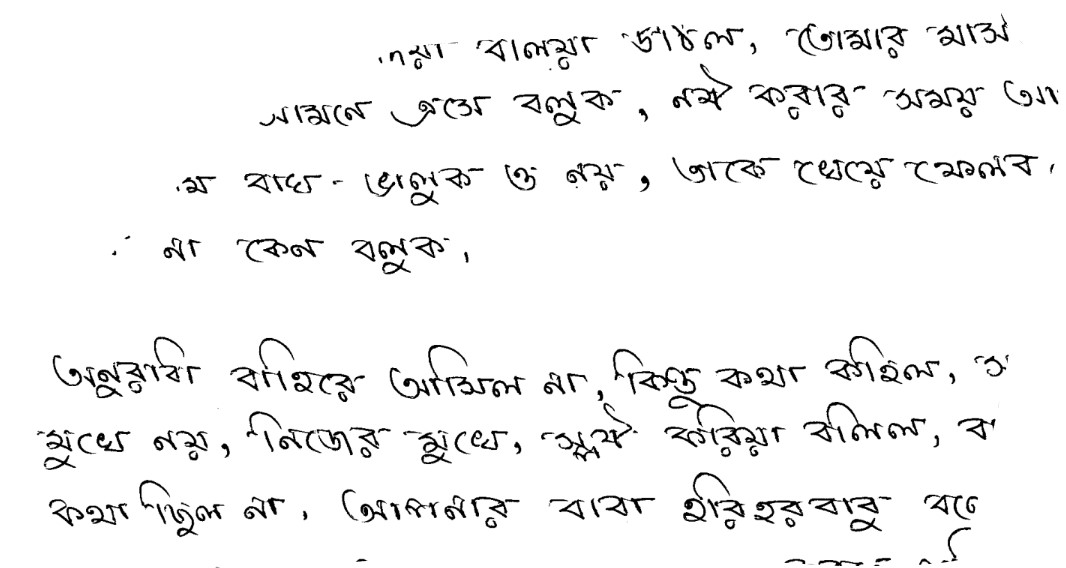 বলিয়া উঠিল, তোমার মাসি
সামনে এসে বলুক, নষ্ট করার সময় আ
বাঘ-ভালুক ও নয়, তাকে খেয়ে ফেলব।
না কেন বলুক।
অনুরাধা বাহিরে আসিল না, কিন্তু কথা কহিল,
মুখে নয়, নিজের মুখে, স্পষ্ট করিয়া বলিল,
কথা ছিল না। আপনার বাবা হরিহরবাবু